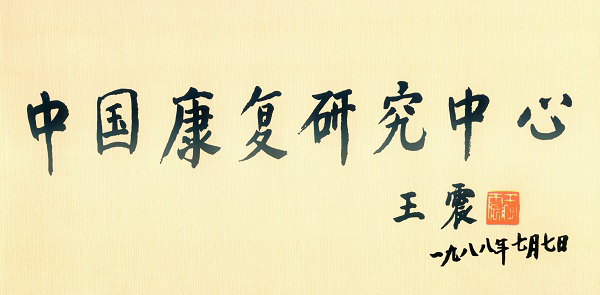 中国康复研究中心
王震
一九八八年七月七日